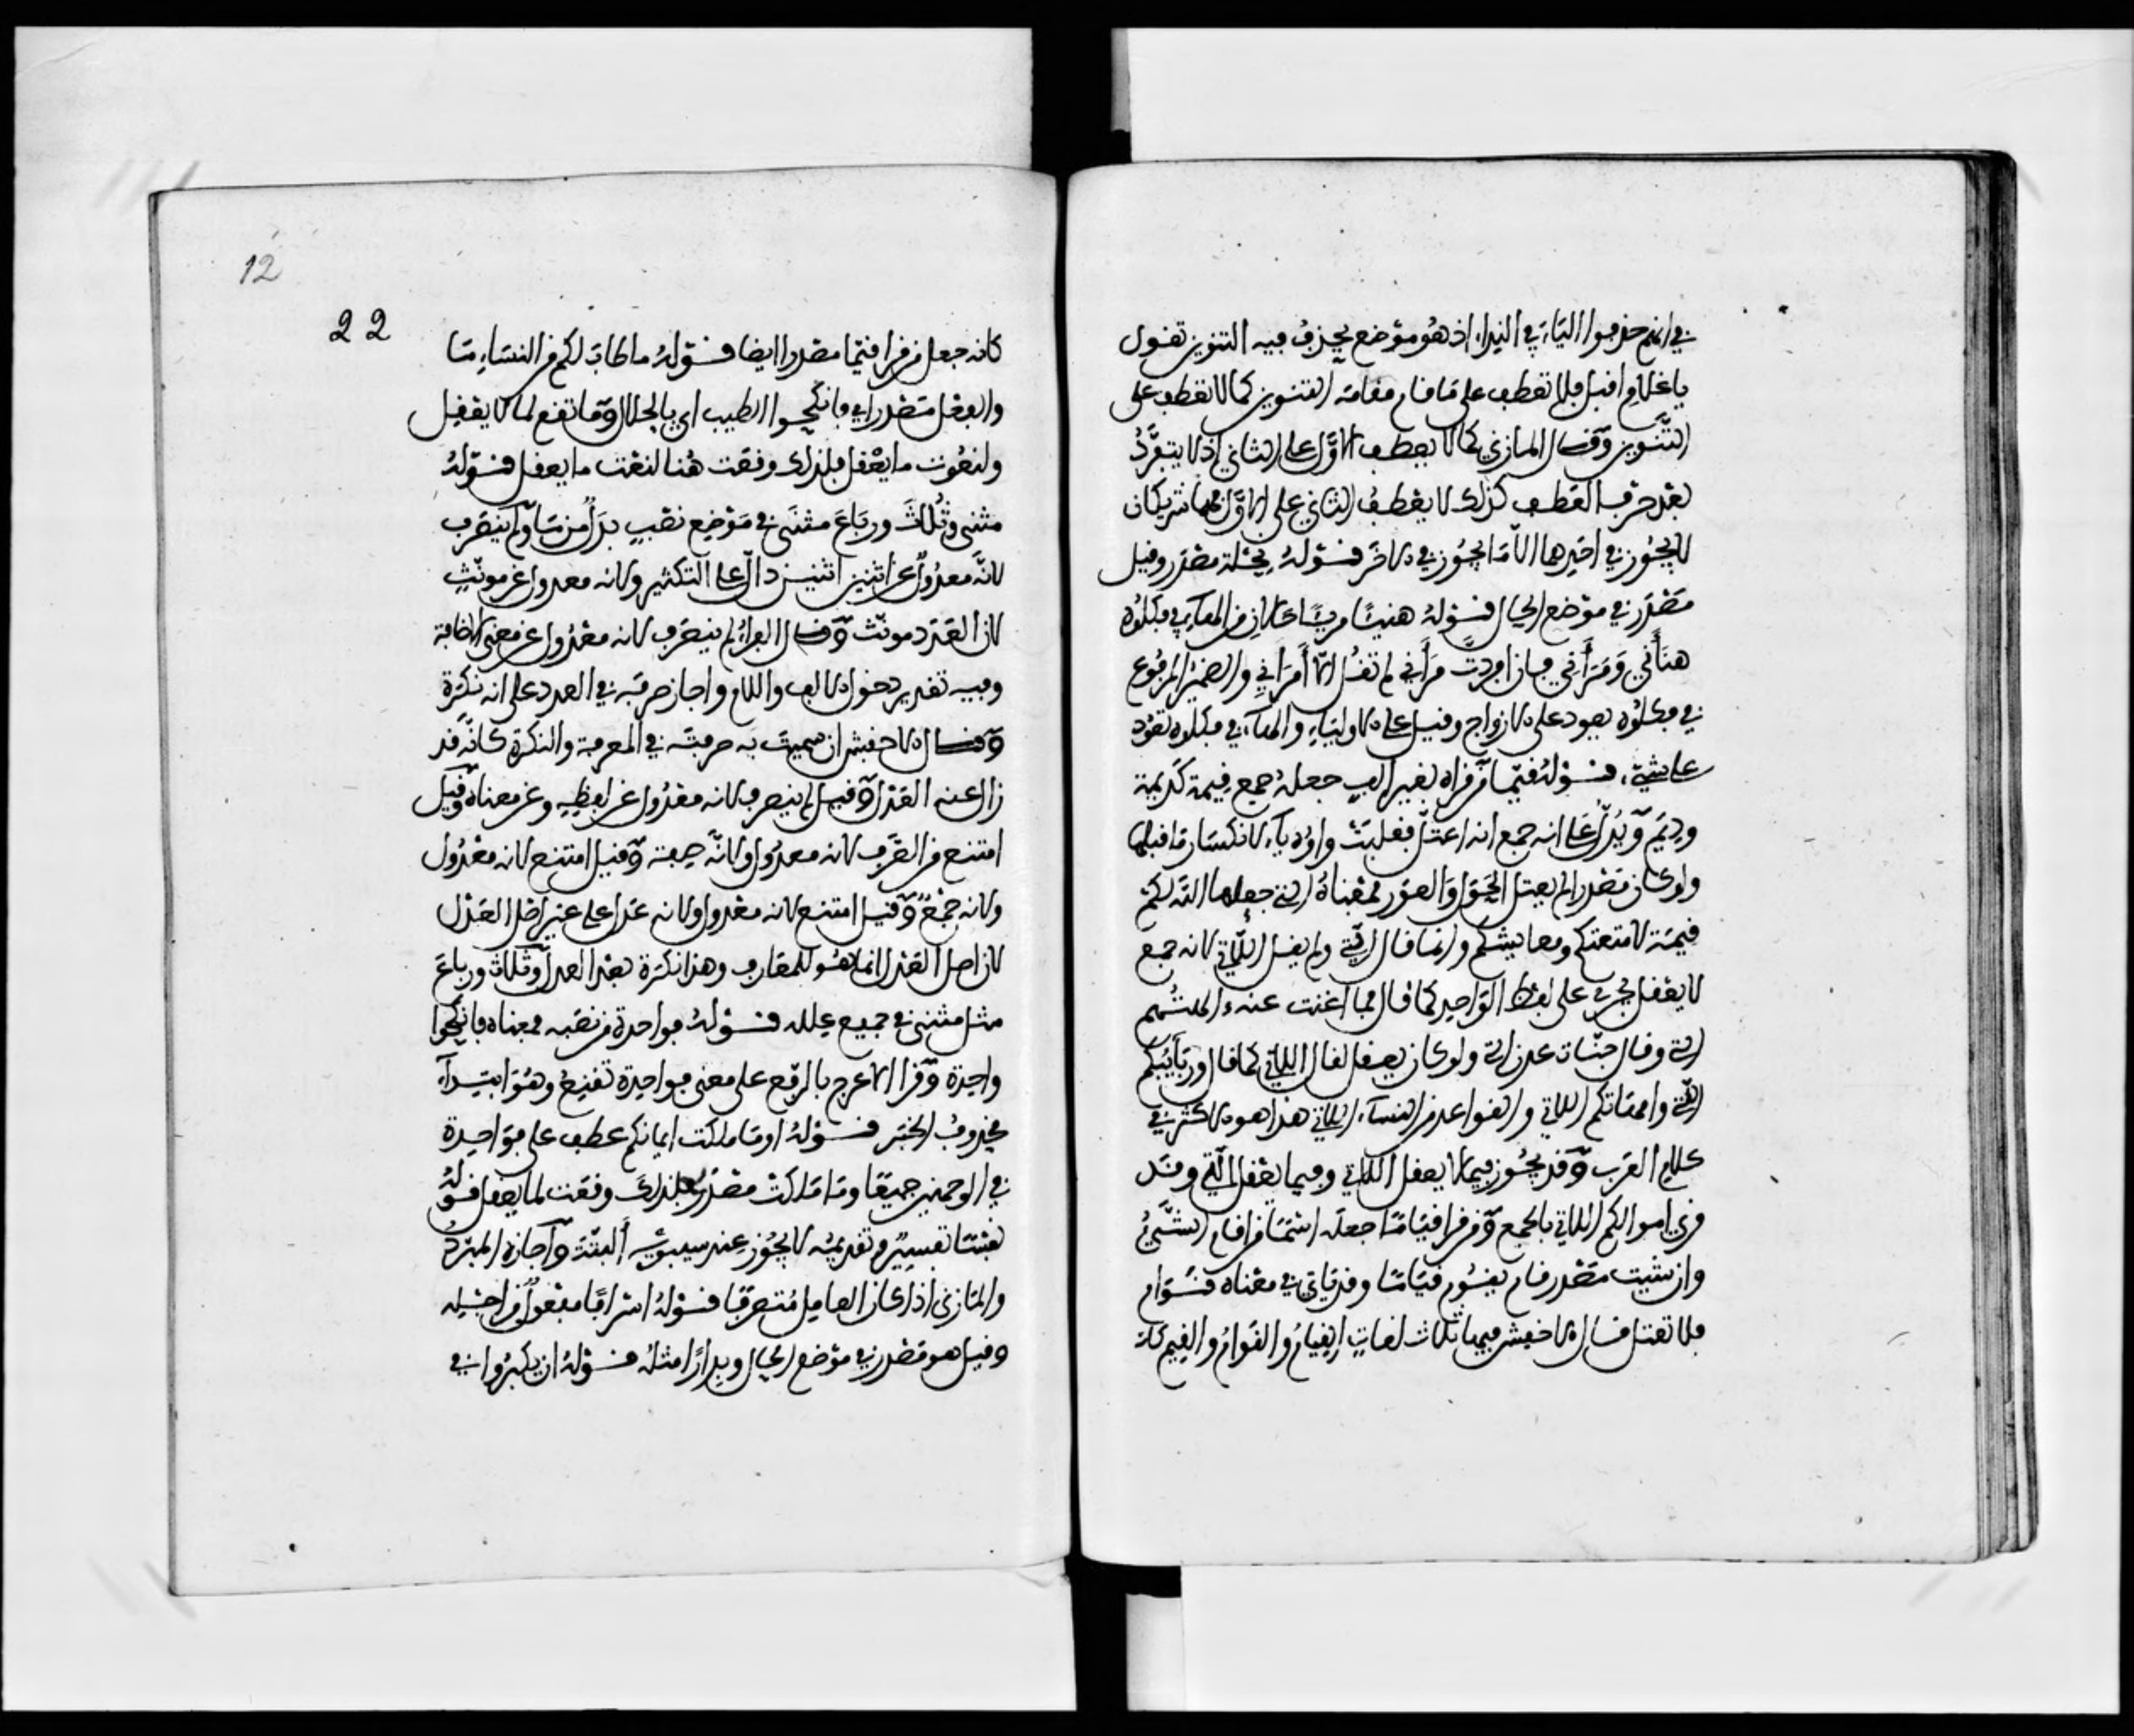 في انهم حذفوا الياء في النداء اذ هو موضع يحذف فيه التنوين تقول
يا غلام اقبل فلا تعطف على ما قام مقامه التنوين كما لا تعطف على
التنوين وقال المازني كما لا يعطف الاول على الثاني اذ لا ينفرد
بعد حرف العطف كذلك لا يعطف الثاني على الاول فهما شريكان
لا يجوز في احدهما الا ما يجوز في الاخر قوله نحلة مصدر وقيل
مصدر في موضع الحال قوله هنيئا مريئا حالان من الهاء في فكلوه
هنأني ومرأني فان افردت مرأني لم تقل الا أمرأني والضمير المرفوع
في فكلوه يعود على الازواج وقيل على الاولياء والهاء في فكلوه تعود
على شيء قوله قيما من قراه بغير الف جعله جمع قيمة كديمة
وديم ويدل على انه جمع انه اعتل فقلبت واوه ياء لانكسار ما قبلها
ولو كان مصدرا لم يعتل كالحول والعور فمعناه التي جعلها الله لكم
قيمة لامتعتكم ومعايشكم وانما قال التي ولم يقل اللاتي لانه جمع
لا يعقل فجرى على لفظ الواحد كما قال فما اغنت عنهم ءالهتهم
التي وقال جنات عدن التي ولو كان يعقل لقال اللاتي كما قال وربائبكم
التي وامهاتكم اللاتي والقواعد من النساء اللاتي هذا هو الاكثر في
كلام العرب وقد يجوز فيما لا يعقل اللاتي وفيما يعقل التي وقد
قرئ اموالكم اللاتي بالجمع ومن قرا قياما جعله اسما من اقام الشيء
وان شيت مصدر قام يقوم قياما وقد ياتي في معناه قوام
فلا تعتل قال الاخفش فيها ثلاث لغات القيام والقوام والقيم كانه
12
22
كانه جعل من قرا قيما مصدرا ايضا قوله ما طاب لكم من النساء ما
والفعل مصدر اي فانكحوا الطيب اي الحلال وما تقع لما لا يعقل
ولنعوت ما يعقل فلذلك وقعت هنا لنعت ما يعقل قوله
مثنى وثلاث ورباع مثنى في موضع نصب بدل من ما ولم ينصرف
لانه معدول عن اثنين اثنين دال على التكثير ولانه معدول عن مونث
لان العدد مونث وقال الفراء لم ينصرف لانه معدول عن معنى الاضافة
وفيه تقدير دخول الالف واللام واجاز صرفه في العدد على انه نكرة
وقال الاخفش ان سميت به صرفته في المعرفة والنكرة كانه قد
زال عنه العدل وقيل لم ينصرف لانه معدول عن لفظه وعن معناه وقيل
امتنع من الصرف لانه معدول ولانه صفة وقيل امتنع لانه معدول
ولانه جمع وقيل امتنع لانه معدول ولانه عدل على غير اصل العدل
لان اصل العدل انما هو للمعارف وهذا نكرة بعد العدل وثلاث ورباع
مثل مثنى في جميع علله قوله فواحدة من نصبه فمعناه فانكحوا
واحدة وقرا الاعرج بالرفع على معنى فواحدة تقنع وهو ابتداء
محذوف الخبر قوله او ما ملكت ايمانكم عطف على فواحدة
في الوجهين جميعا وما ملكت مصدر فلذلك وقعت لما يعقل قوله
نفسا تفسير وتقديمه لا يجوز عند سيبويه البتة واجازه المبرد
والمازني اذا كان العامل متصرفا قوله اسرافا مفعول من اجله
وقيل هو مصدر في موضع الحال وبدارا مثله قوله ان يكبروا في